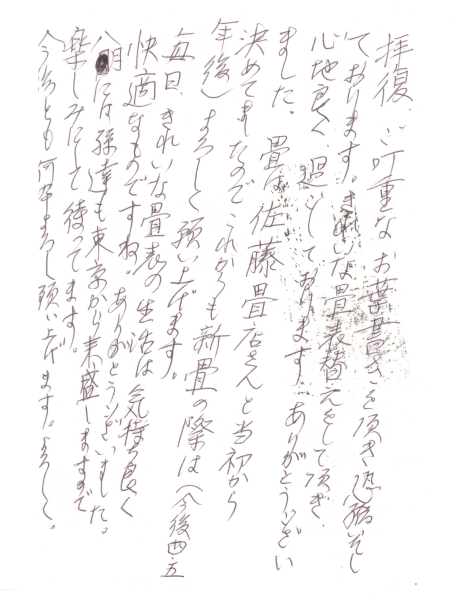 拝復、ご叮重なお葉書きを頂き恐縮いたし
ております。きれいな畳表替えをして頂き、
心地良く過ごしております。ありがとうござい
ました。畳は佐藤畳店さんと当初から
決めてましたのでこれからも新畳の際は(今後四・五
年後)よろしく願い上げます。
毎日、きれいな畳表の生活は気持ち良く
快適なものですね。ありがとうございました。
八月には孫達も東京から来盛しますので
楽しみにして待ってます。
今後とも何卒よろしく願い上げます。よろしく。